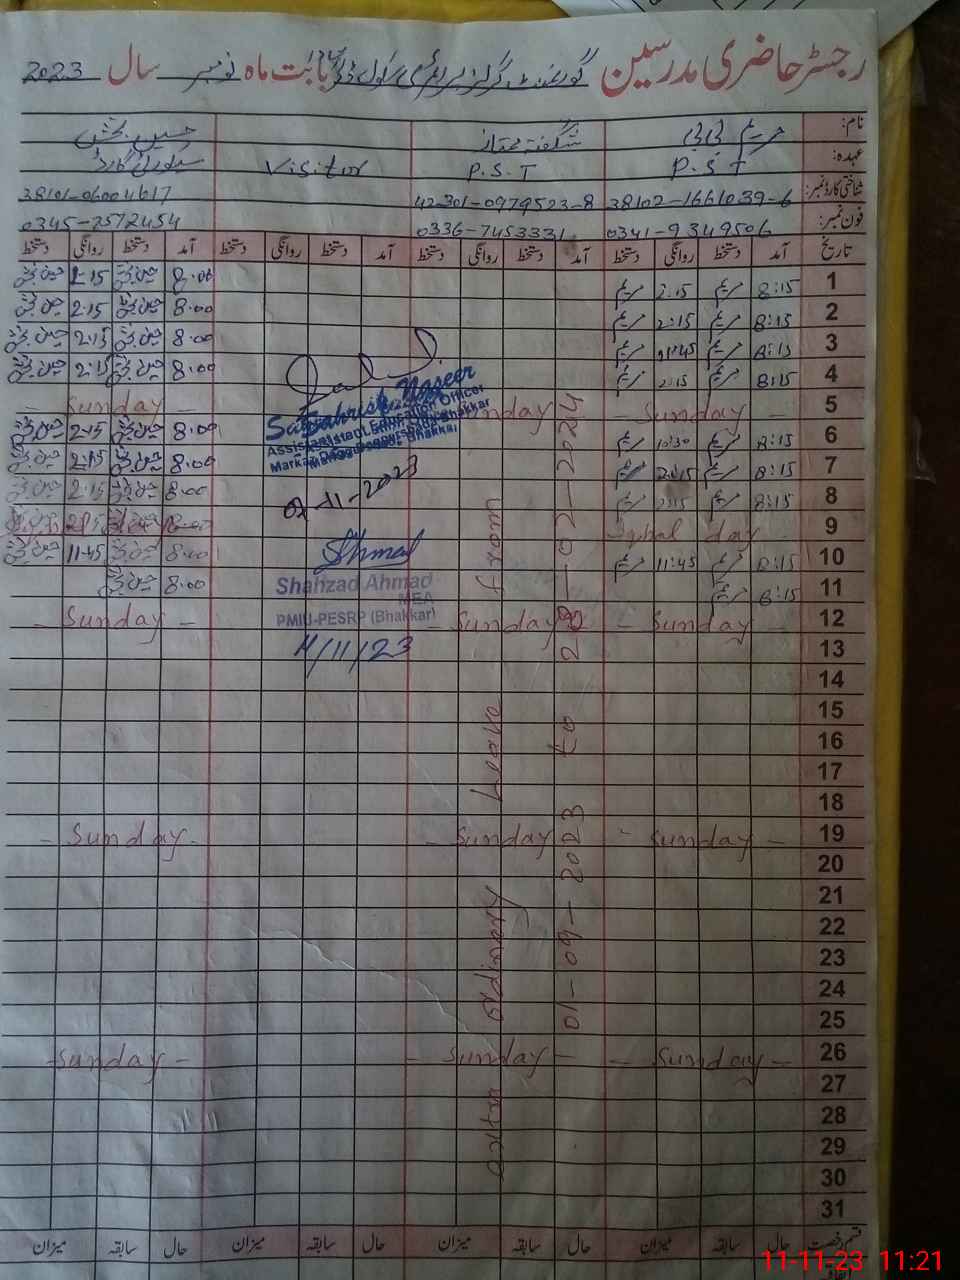 رجسٹر حاضری مدرسین گورنمنٹ گرلز پرائمری سکول بابت ماہ نومبر سال 2023
نام: مریم بی بی شگفتہ ممتاز حسین بخش
عہدہ: P.S.T P.S.T Visitor سیکورٹی گارڈ
شناختی کارڈ نمبر: 38102-1661039-6 42301-0979523-8 38101-06004617
فون نمبر: 0341-9349506 0336-7453331 0345-7572454
تاریخ آمد دستخط روانگی دستخط آمد دستخط روانگی دستخط آمد دستخط روانگی دستخط آمد دستخط روانگی دستخط
1 8:15 مریم 2:15 مریم 8.00 2.15
2 8:15 مریم 2:15 مریم 8.00 2.15
3 8:15 مریم مریم 8.00 2.15
4 8:15 مریم 2:15 مریم 8.00 2.15
5 - Sunday - Sunday - Sunday -
6 8:15 مریم 10:30 مریم 8.00 2.15
7 8:15 مریم 2:15 مریم 8.00 2.15
8 8:15 مریم 2:15 مریم 8.00 2.15
9 Iqbal day
10 8:15 مریم 11:45 مریم 8.00 11.45
11 8:15 مریم 8.00
12 - Sunday - - Sunday - Sunday -
13
14
15
16
17
18
19 - Sunday - - Sunday - Sunday -
20
21
22
23
24
25
26 - Sunday - - Sunday - - Sunday -
27
28
29
30
31
Extra oldinary Leave from
01-09-2023 to 28-02-2024
Naseer
Assistant Education Officer
Markaz
Bhakkar
11-2023
Ahmad
Shahzad Ahmad
MEA
PMIU-PESRP (Bhakkar)
11/11/23
قسم رخصت حال سابقہ میزان حال سابقہ میزان حال سابقہ میزان حال سابقہ میزان
11-11-23 11:21